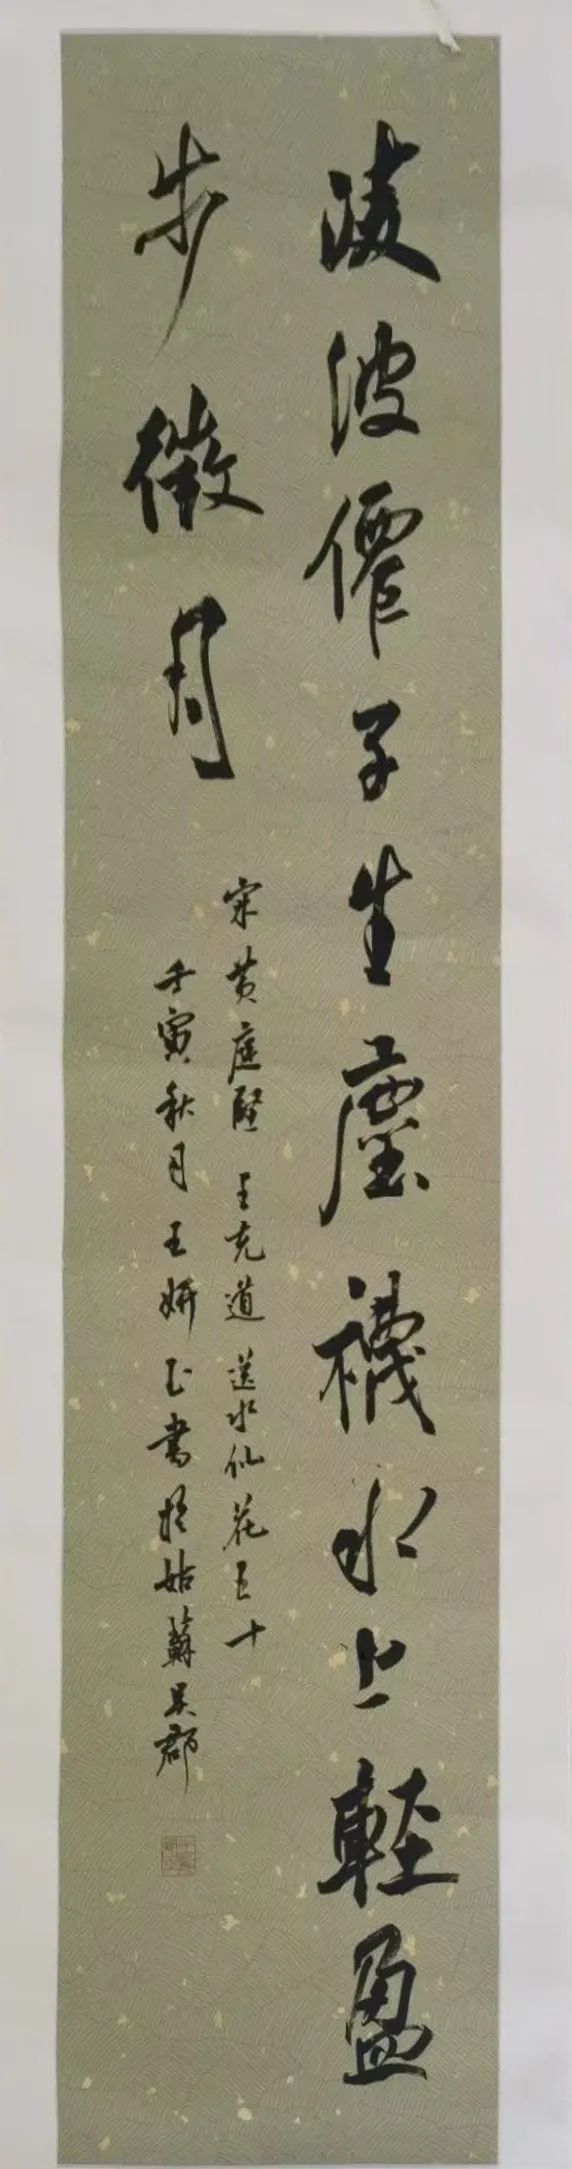 凌波僊子生塵襪水上輕盈
步微月
宋黄庭堅 王充道 送水仙花五十
壬寅秋月王妍之書於姑蘇吴郡